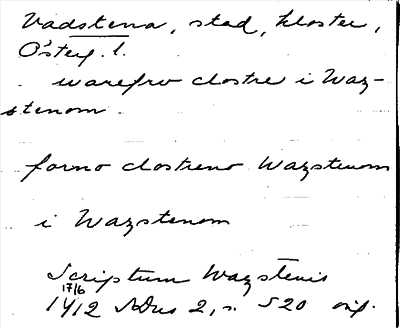 Vadstena, stad, kloster,
Österg. l.
warefro clostre i Waz-
stenom.
forno clostreno Wazstenom
i Wazstenom
Scriptum Wazstenis
17/6
1412 2, n. 520